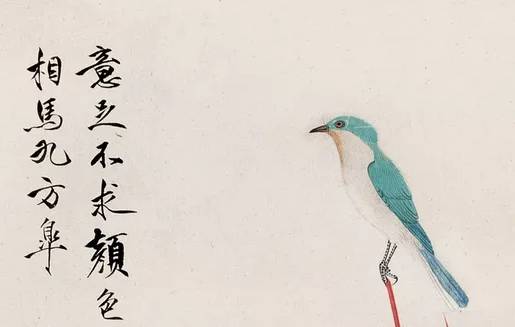 意足不求顏色
相馬九方皋